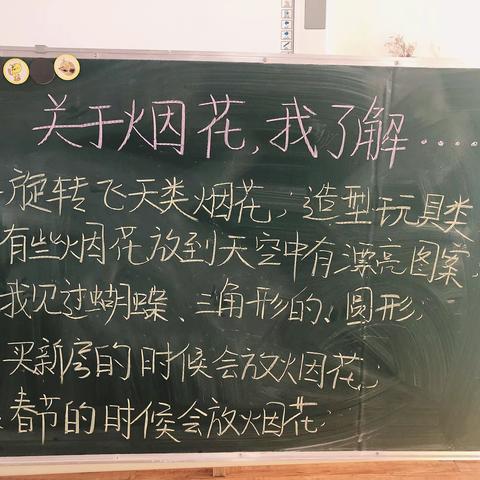 关于烟花,我了解……
旋转飞天类烟花；造型玩具类
有些烟花放到天空中有漂亮图案
我见过蝴蝶、三角形的、圆形；
买新房的时候会放烟花；
春节的时候会放烟花；